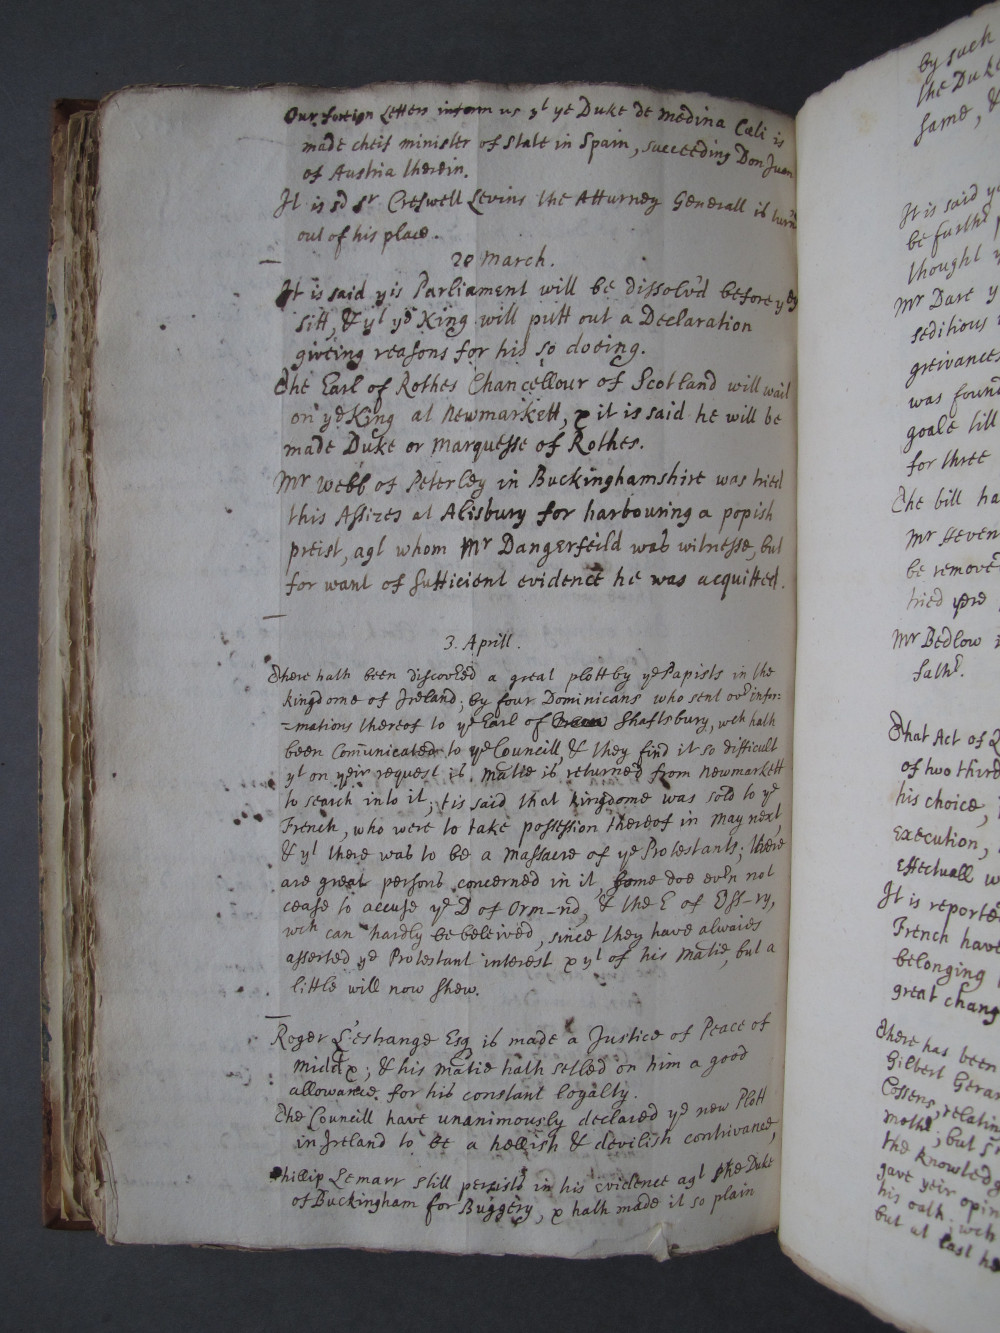 Our foreign Letters inform us yt ye Duke de Medina Cæli is
made cheif minister of state in Spain, succeeding Don Juan
of Austria therein.
It is sd Sr Creswell Levins the Atturney Generall is turnd
out of his place.
20 March.
It is said yis Parliament will be dissolv'd before yey
sitt, & yt ye King will putt out a Declaration
giveing reasons for his so doeing.
The Earl of Rothes Chancellour of Scotland will wait
on ye King at Newmarkett, & it is said he will be
made Duke or Marquesse of Rothes.
Mr Webb of Peterley in Buckinghamshire was tried
this Assizes at Alisbury for harbouring a popish
preist, agt whom Mr Dangerfeild was witnesse, but
for want of sufficient evidence he was acquitted.
3. Aprill.
There hath been discovered a great plott by ye Papists in the
kingdome of Ireland, by four Dominicans who sent over infor=
=mations thereof to ye Earl of Shaftsbury, wch hath
been Com̄unicated to ye Councill, & they find it so difficult
yt on yeir request is Matie is returned from Newmarkett
to search into it; tis said that kingdome was sold to ye
French, who were to take possession thereof in May next,
& yt there was to be a Massacre of ye Protestants; there
are great persons concerned in it, some doe even not
cease to accuse ye D of Orm-nd, & the E of Oss-ry,
wch can hardly be beleived, since they have alwaies
asserted ye Protestant interest & yt of his Matie, but a
little will now shew.
Roger L'estrange Esq is made a Justice of Peace of
Middx; & his Matie hath setled on him a good
allowance for his constant loyalty.
The Councill have unanimously declared ye new Plott
in Ireland to be a hellish & devilish contrivance,
Phillip Lemarr still persists in his evidence agt the Duke
of Buckingham for Buggery, & hath made it so plain
by such
the Duke
same, &
It is said ye
be furthr
thought
Mr Dare
seditious
greivances
was found
goale till
for three
The bill ha
Mr Steven
be remove
tried yere
Mr Bedlow
fathr.
That Act of Q
of two third
his choice,
Execution,
effectuall w
It is reporte
French have
belonging
great chang
There has been
Gilbert Gerar
Cossens, relatin
mothr; but Sr
the knowledg
gave yeir opin
his oath, wch
but at last he